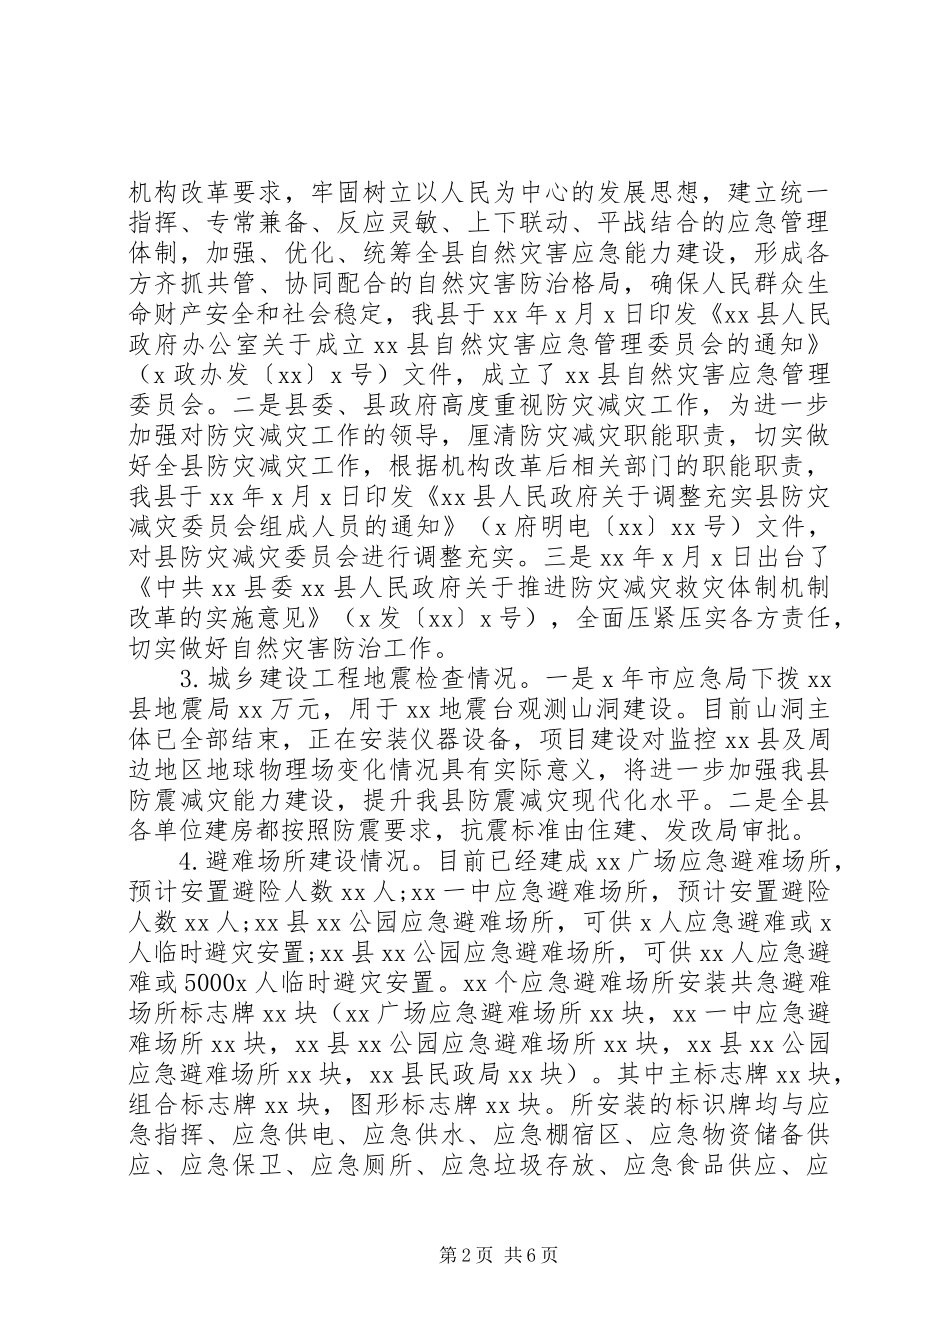 机构改革要求，牢固树立以人民为中心的发展思想，建立统一
指挥、专常兼备、反应灵敏、上下联动、平战结合的应急管理
体制，加强、优化、统筹全县自然灾害应急能力建设，形成各
方齐抓共管、协同配合的自然灾害防治格局，确保人民群众生
命财产安全和社会稳定，我县于 xx 年 x 月 x 日印发《xx 县人民
政府办公室关于成立 xx 县自然灾害应急管理委员会的通知》
（x 政办发〔xx〕x 号）文件，成立了 xx 县自然灾害应急管理
委员会。二是县委、县政府高度重视防灾减灾工作，为进一步
加强对防灾减灾工作的领导，厘清防灾减灾职能职责，切实做
好全县防灾减灾工作，根据机构改革后相关部门的职能职责，
我县于 xx 年 x 月 x 日印发《xx 县人民政府关于调整充实县防灾
减灾委员会组成人员的通知》（x 府明电〔xx〕xx 号）文件，
对县防灾减灾委员会进行调整充实。三是 xx 年 x 月 x 日出台了
《中共 xx 县委 xx 县人民政府关于推进防灾减灾救灾体制机制
改革的实施意见》（x 发〔xx〕x 号），全面压紧压实各方责任，
切实做好自然灾害防治工作。
3.城乡建设工程地震检查情况。一是 x 年市应急局下拨 xx
县地震局 xx 万元，用于 xx 地震台观测山洞建设。目前山洞主
体已全部结束，正在安装仪器设备，项目建设对监控 xx 县及周
边地区地球物理场变化情况具有实际意义，将进一步加强我县
防震减灾能力建设，提升我县防震减灾现代化水平。二是全县
各单位建房都按照防震要求，抗震标准由住建、发改局审批。
4.避难场所建设情况。目前已经建成 xx 广场应急避难场所，
预计安置避险人数 xx 人;xx 一中应急避难场所，预计安置避险
人数 xx 人;xx 县 xx 公园应急避难场所，可供 x 人应急避难或 x
人临时避灾安置;xx 县 xx 公园应急避难场所，可供 xx 人应急避
难或 5000x 人临时避灾安置。xx 个应急避难场所安装共急避难
场所标志牌 xx 块（xx 广场应急避难场所 xx 块，xx 一中应急避
难场所 xx 块，xx 县 xx 公园应急避难场所 xx 块，xx 县 xx 公园
应急避难场所 xx 块，xx 县民政局 xx 块）。其中主标志牌 xx 块，
组合标志牌 xx 块，图形标志牌 xx 块。所安装的标识牌均与应
急指挥、应急供电、应急供水、应急棚宿区、应急物资储备供
应、应急保卫、应急厕所、应急垃圾存放、应急食品供应、应
第 2 页 共 6 页